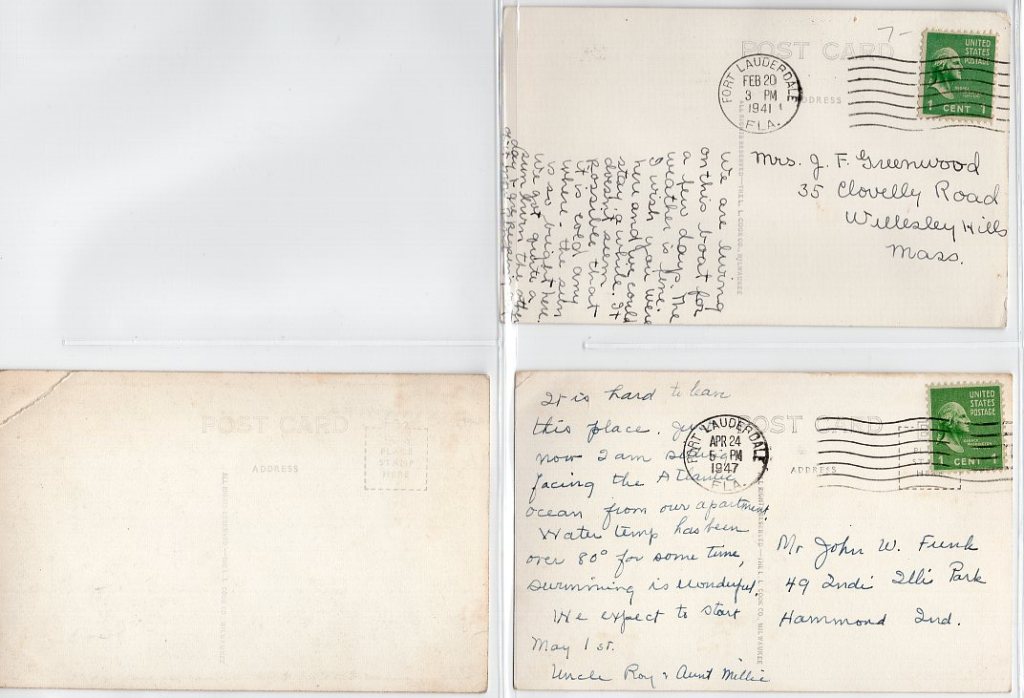 POST CARD
ADDRESS
FORT LAUDERDALE
FEB 20
3 PM
1941
FLA.
UNITED
STATES
POSTAGE
1 CENT 1
Mrs. J. F. Greenwood
35 Clovelly Road
Wellesley Hills
Mass.
We are living
on this boat for
a few days. The
weather is fine.
I wish you were
here and we could
stay a while. It
doesn't seem
possible that
it is cold any
where - the sun
is so bright here.
We got quite a
sun burn the other
day
ALL RIGHTS RESERVED—THE L. L. COOK CO., MILWAUKEE
POST CARD
PLACE
STAMP
HERE
ADDRESS
POST CARD
ADDRESS
FORT LAUDERDALE
APR 24
5 PM
1947
FLA.
UNITED
STATES
POSTAGE
1 CENT 1
It is hard to leave
this place.
now I am
facing the Atlantic
ocean from our apartment
Water temp has been
over 80° for some time,
swimming is wonderful.
We expect to start
May 1st.
Uncle Roy & Aunt Millie
ALL RIGHTS RESERVED—THE L. L. COOK CO., MILWAUKEE
Mr John W. Funk
49 Indi Illi Park
Hammond Ind.